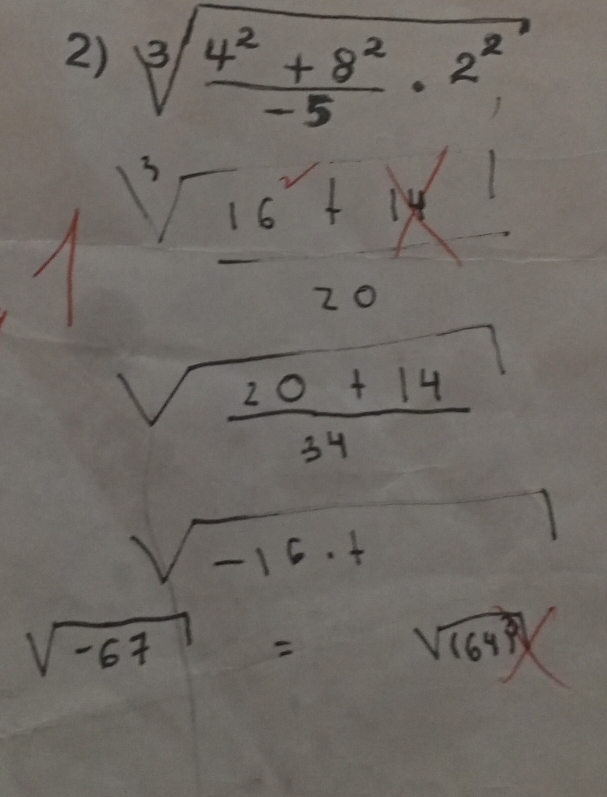 2) ∛((4² + 8²)/(-5) · 2²)
∛((16 ✓ + 14)/20)
1
√((20 + 14)/34)
√(-16 · +)
√(-67) = √(164³)